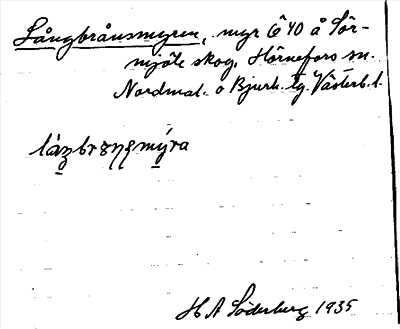 Långbrånsmyren, myr Ö 40 å Sör-
mjöle skog. Hörnefors sn.
Nordmal. o Bjurh. tg. Västerb. l.
H A Söderberg 1935